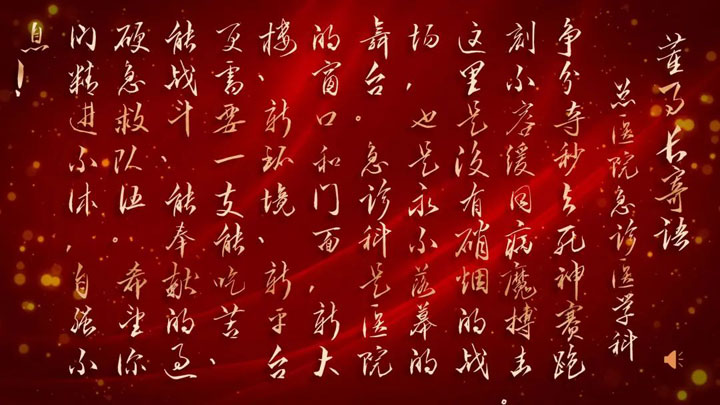 董事长寄语
总医院急诊医学科
争分夺秒与死神赛跑
刻不容缓同病魔搏击。
这里是没有硝烟的战
场，也是永不落幕的
舞台。急诊科是医院
的窗口和门面，新大
楼、新环境、新平台
更需要一支能吃苦、
能战斗、能奉献的过
硬急救队伍。希望你
们精进不休，自强不
息！